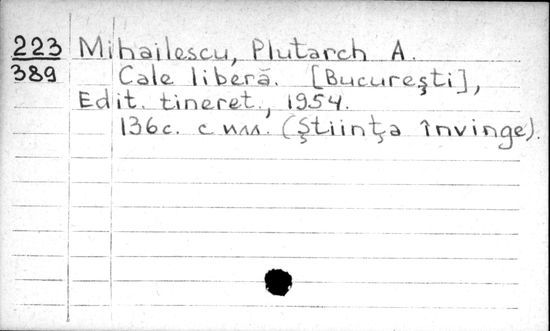 223 Mihailescu, Plutarch A.
389 Cale liberă. [București],
Edit. tineret., 1954.
136с. с илл. (Știința învinge).